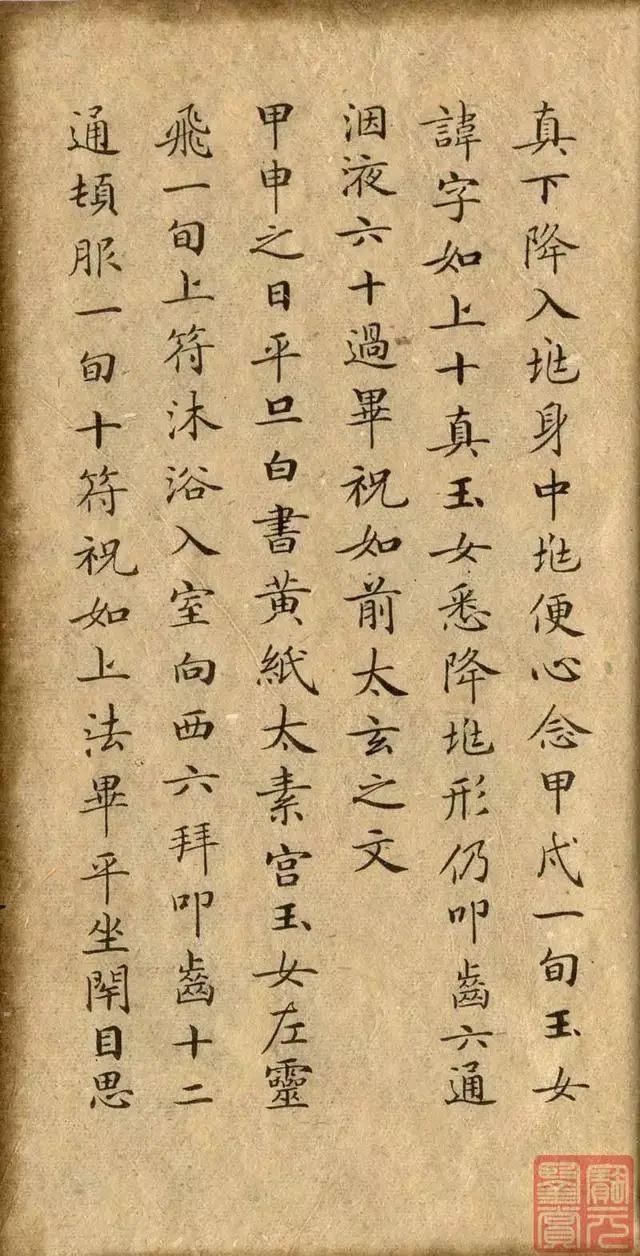 真下降入兆身中兆便心念甲戌一旬玉女
諱字如上十真玉女悉降兆形仍叩齒六通
咽液六十過畢祝如前太玄之文
甲申之日平旦白書黃紙太素宮玉女左靈
飛一旬上符沐浴入室向西六拜叩齒十二
通頓服一旬十符祝如上法畢平坐閉目思
寶元
鑒賞